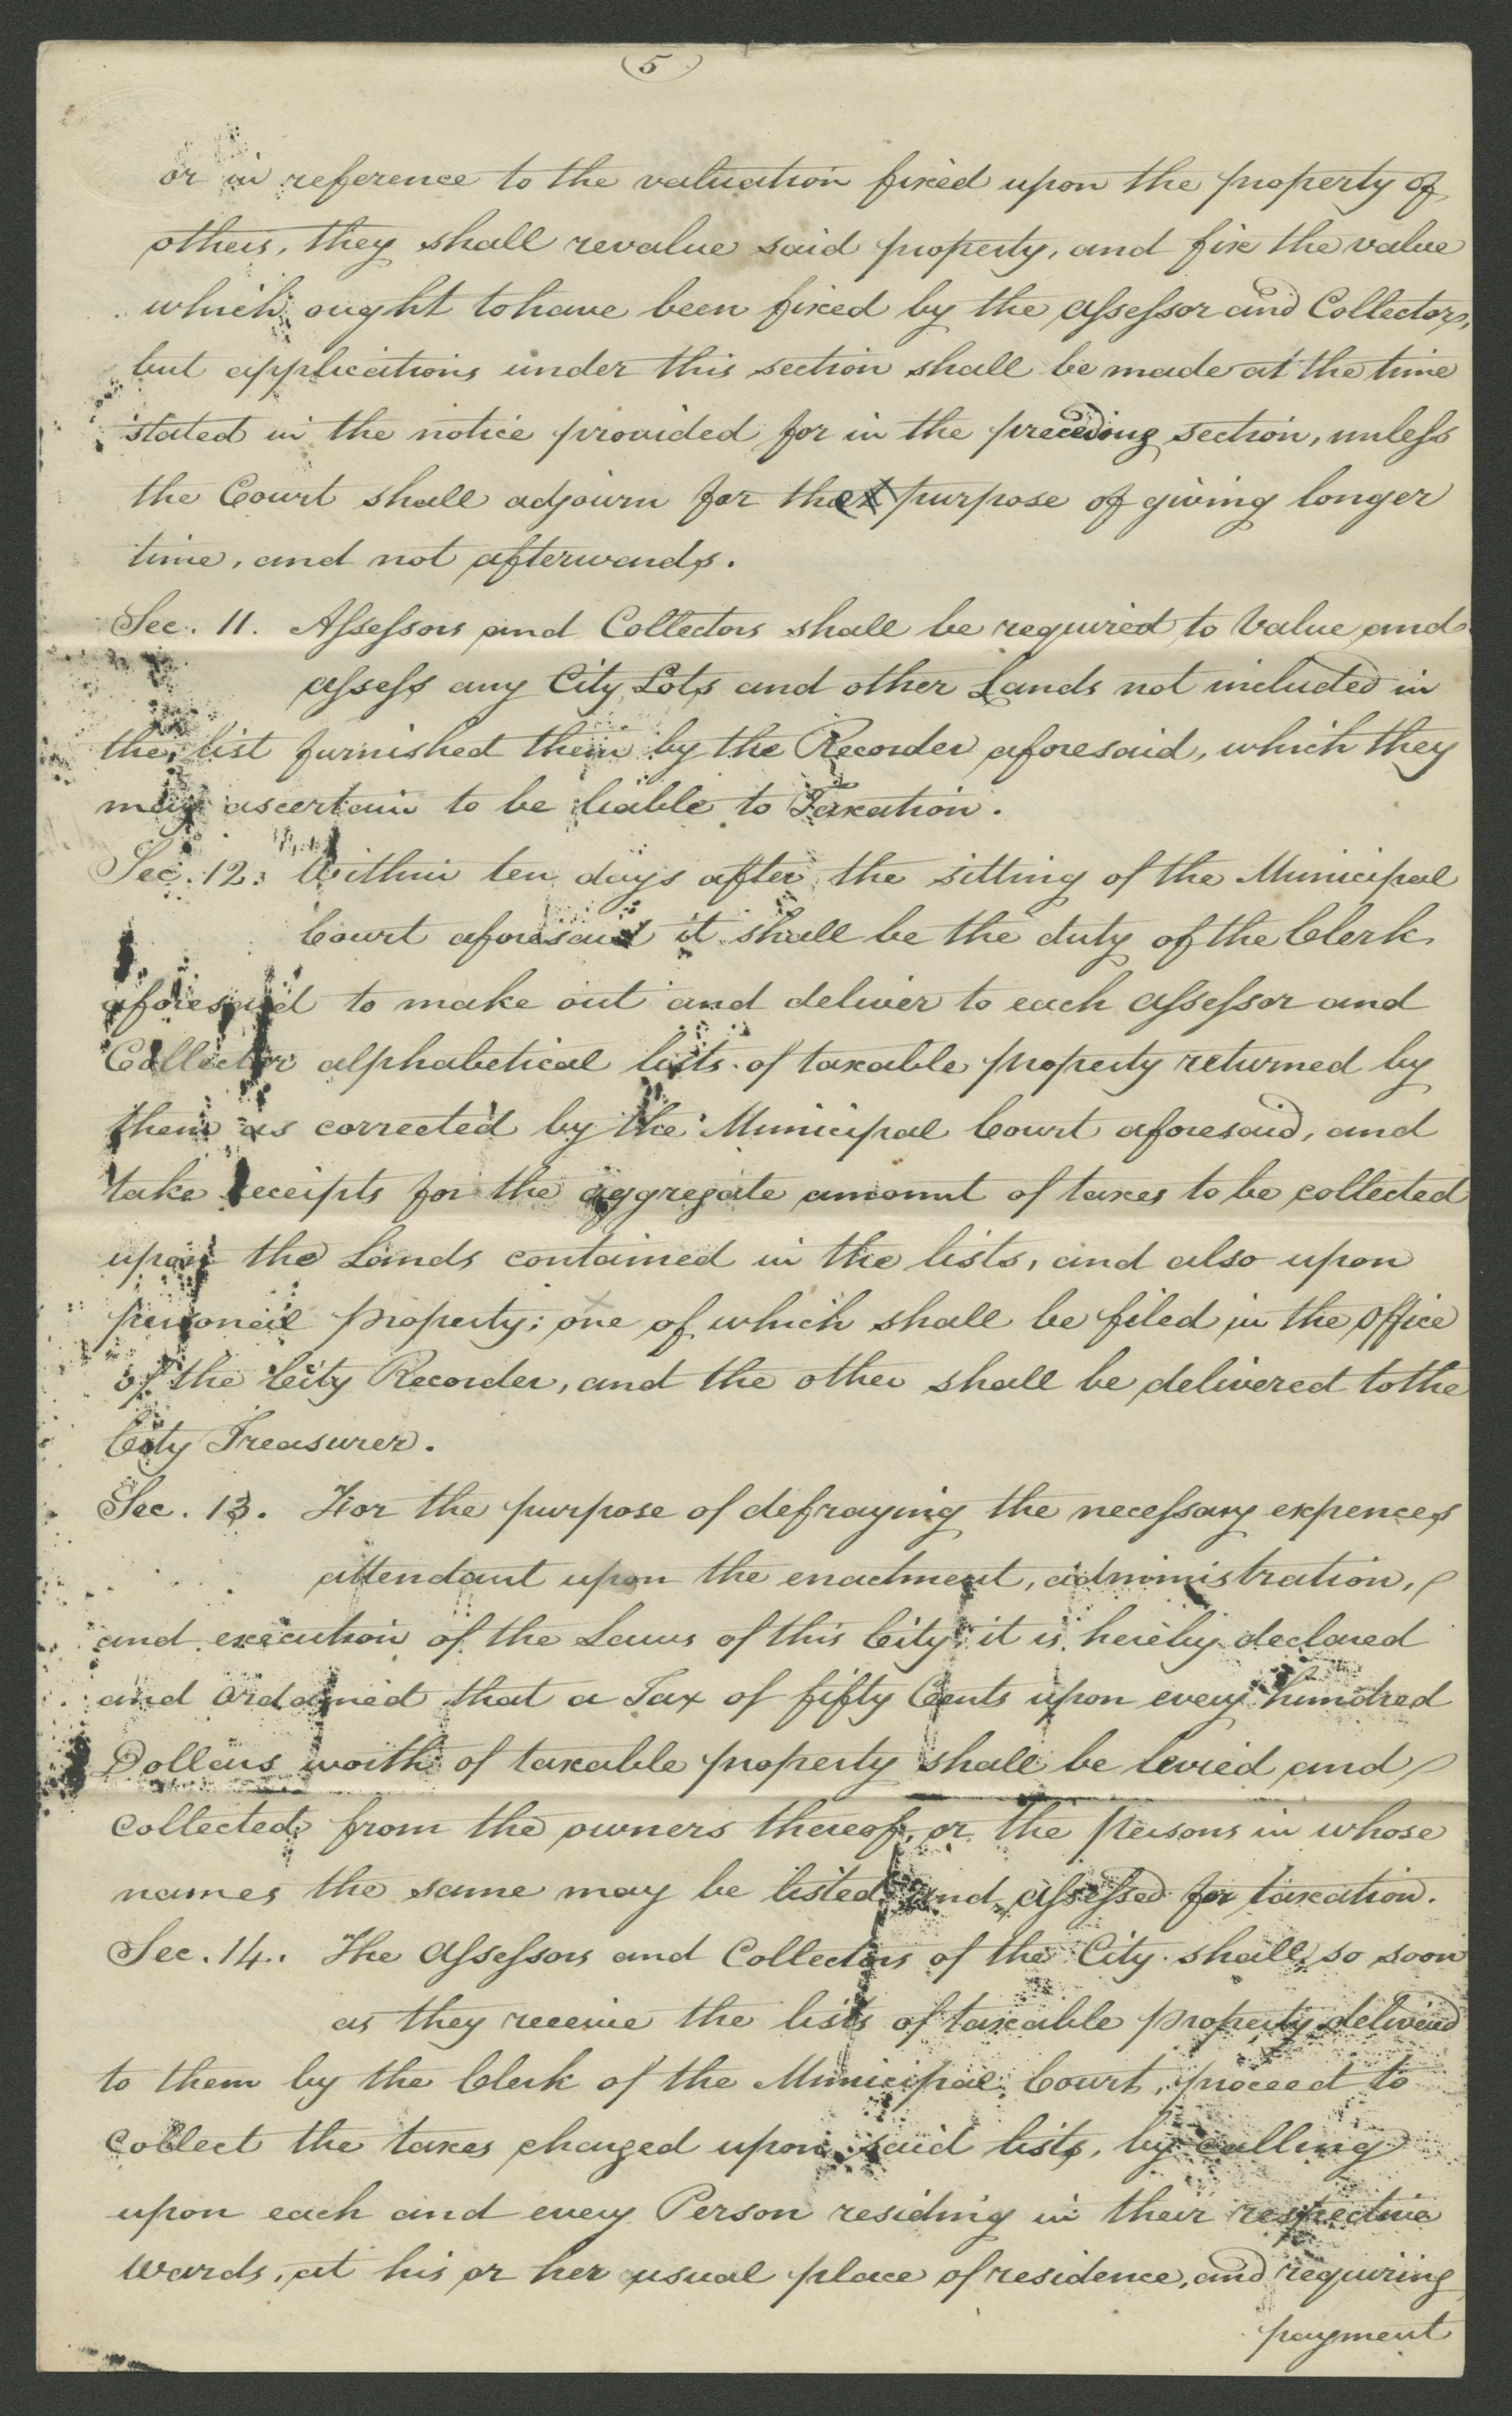 5
or in reference to the valuation fixed upon the property of
others, they shall revalue said property, and fix the value
which ought to have been fixed by the assessor and Collectors,
but applications under this section shall be made at the time
stated in the notice provided for in the preceding section, unless
the Court shall adjourn for the purpose of giving longer
time, and not afterwards.
Sec. 11. Assessors and Collectors shall be required to Value and
assess any City Lots and other Lands not included in
the list furnished them by the Recorder aforesaid, which they
may ascertain to be liable to Taxation.
Sec. 12. Within ten days after the sitting of the Municipal
Court aforesaid it shall be the duty of the Clerk
aforesaid to make out and deliver to each assessor and
Collector alphabetical lists of taxable property returned by
them as corrected by the Municipal Court aforesaid, and
take receipts for the aggregate amount of taxes to be collected
upon the Lands contained in the lists, and also upon
personal property; one of which shall be filed in the office
of the City Recorder, and the other shall be delivered to the
City Treasurer.
Sec. 13. For the purpose of defraying the necessary expences
attendant upon the enactment, administration,
and execution of the Laws of this City, it is hereby declared
and ordained that a Tax of fifty Cents upon every hundred
Dollars worth of taxable property shall be levied and
collected from the owners thereof, or the persons in whose
names the same may be listed and assessed for taxation.
Sec. 14. The Assessors and Collectors of the City shall, so soon
as they receive the lists of taxable property delivered
to them by the Clerk of the Municipal Court, proceed to
collect the taxes charged upon said lists, by calling
upon each and every Person residing in their respective
Wards, at his or her usual place of residence, and requiring
payment